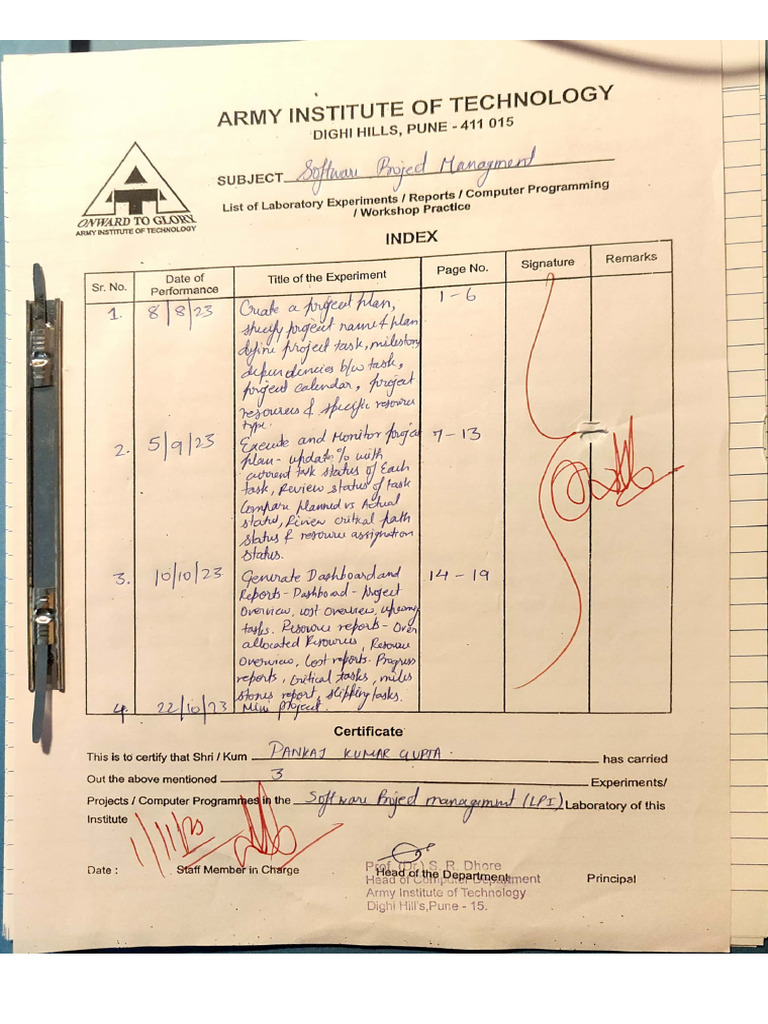 ARMY INSTITUTE OF TECHNOLOGY
DIGHI HILLS, PUNE - 411 015
SUBJECT Software Project Managment
List of Laboratory Experiments / Reports / Computer Programming
/ Workshop Practice
ONWARD TO GLORY
ARMY INSTITUTE OF TECHNOLOGY
INDEX
Sr. No. Date of Performance Title of the Experiment Page No. Signature Remarks
1. 8/8/23 Create a project plan, 1-6
specify project name & plan
define project task, milestone,
dependencies b/w task,
project calendar, project
resources & specific resource
type.
2. 5/9/23 Execute and Monitor project 7-13
plan- update % with
current task status of Each
task, Review status of task
Compare planned vs Actual
status, Review critical path
status & resource assignation
status.
3. 10/10/23 Generate Dashboard and 14-19
Reports - Dashboard - project
Overview, cost overview, upcoming
tasks. Resource reports - Over
allocated Resources, Resource
Overview, Cost reports. Progress
reports, Critical tasks, miles
stones report, slipping tasks.
4. 22/10/23 Mini project.
Certificate
This is to certify that Shri / Kum PANKAJ KUMAR GUPTA. has carried
Out the above mentioned 3 Experiments/
Projects / Computer Programmes in the Software Project management (LPI) Laboratory of this
Institute
1/11/23
Date : Staff Member in Charge Head of the Department Principal
Prof. (Dr.) S. R. Dhore
Head of Computer Department
Army Institute of Technology
Dighi Hill's,Pune - 15.